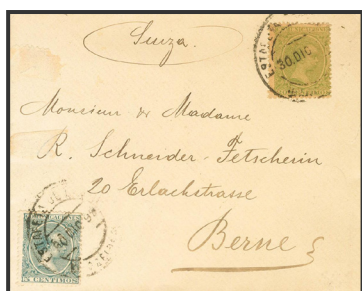 Suiza.
30 DIC
Monsieur & Madame
R. Schneider-Fetscherin
20 Erlachstrasse
Berne
5 CENTIMOS